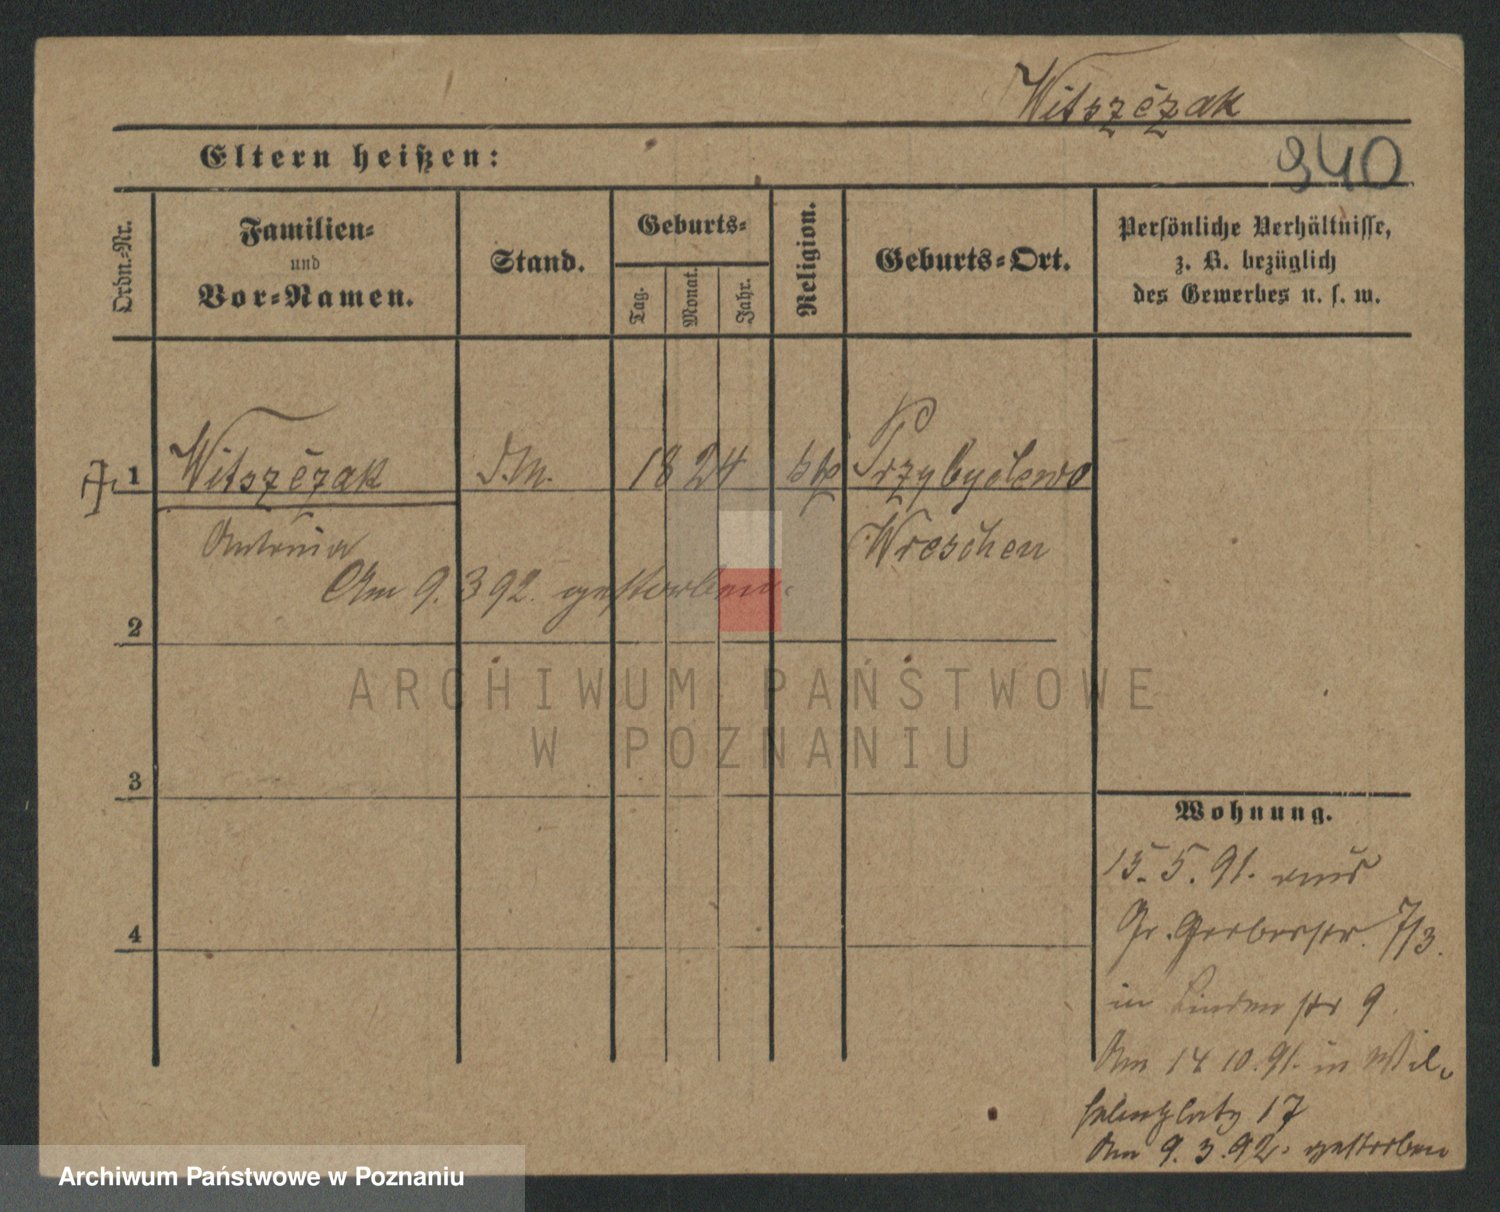 Witszczak
Eltern heißen:
940
Ordn.-Nr.
Familien-
und
Vor-Namen.
Stand.
Geburts-
Tag.
Monat.
Jahr.
Religion.
Geburts-Ort.
Persönliche Verhältnisse,
z. B. bezüglich
des Gewerbes u. s. w.
1
Witszczak
1824
Przybyslewo
Antonia
Wreschen
Am 9. 3 92. gestorben.
2
ARCHIWUM PAŃSTWOWE
W POZNANIU
3
Wohnung.
15. 5. 91. aus
Gr. Gerberstr. 7/3.
4
in Lindenstr 9.
Am 14 10. 91. in Wil-
helmplatz 17
Am 9. 3. 92. gestorben
Archiwum Państwowe w Poznaniu